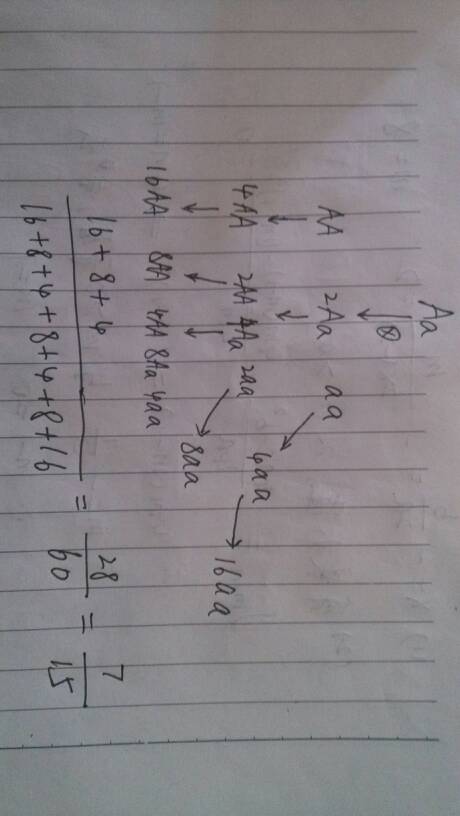 Aa
↓ ⊗
AA 2Aa aa
↓ ↓ ↙
4AA 2AA 4Aa 2aa 4aa
↓ ↓ ↓ ↘ ↓
16AA 8AA 4AA 8Aa 4aa 8aa 16aa
16+8+4 / 16+8+4+8+4+8+16 = 28/60 = 7/15